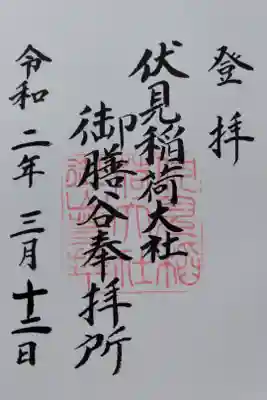 登拝
伏見稲荷大社
御膳谷奉拝所
令和二年三月十二日